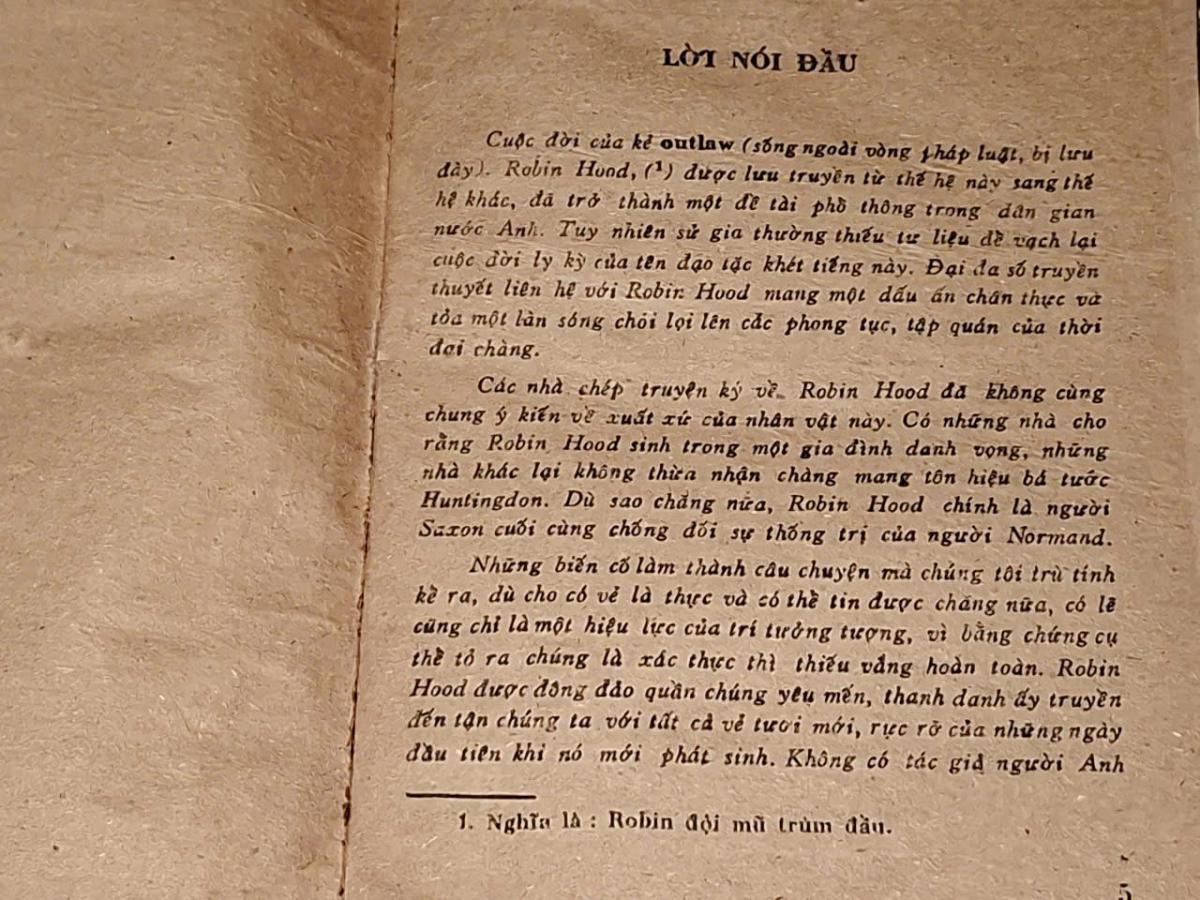 LỜI NÓI ĐẦU
Cuộc đời của kẻ outlaw (sống ngoài vòng pháp luật, bị lưu
đày). Robin Hood, (¹) được lưu truyền từ thế hệ này sang thế
hệ khác, đã trở thành một đề tài phổ thông trong dân gian
nước Anh. Tuy nhiên sử gia thường thiếu tư liệu để vạch lại
cuộc đời ly kỳ của tên đạo tặc khét tiếng này. Đại đa số truyền
thuyết liên hệ với Robin Hood mang một dấu ấn chân thực và
tỏa một làn sóng chói lọi lên các phong tục, tập quán của thời
đại chàng.
Các nhà chép truyện ký về Robin Hood đã không cùng
chung ý kiến về xuất xứ của nhân vật này. Có những nhà cho
rằng Robin Hood sinh trong một gia đình danh vọng, những
nhà khác lại không thừa nhận chàng mang tôn hiệu bá tước
Huntingdon. Dù sao chăng nữa, Robin Hood chính là người
Saxon cuối cùng chống đối sự thống trị của người Normand.
Những biến cố làm thành câu chuyện mà chúng tôi trù tính
kể ra, dù cho có vẻ là thực và có thể tin được chăng nữa, có lẽ
cũng chỉ là một hiệu lực của trí tưởng tượng, vì bằng chứng cụ
thể tỏ ra chúng là xác thực thì thiếu vắng hoàn toàn. Robin
Hood được đông đảo quần chúng yêu mến, thanh danh ấy truyền
đến tận chúng ta với tất cả vẻ tươi mới, rực rỡ của những ngày
đầu tiên khi nó mới phát sinh. Không có tác giả người Anh
1. Nghĩa là : Robin đội mũ trùm đầu.
5